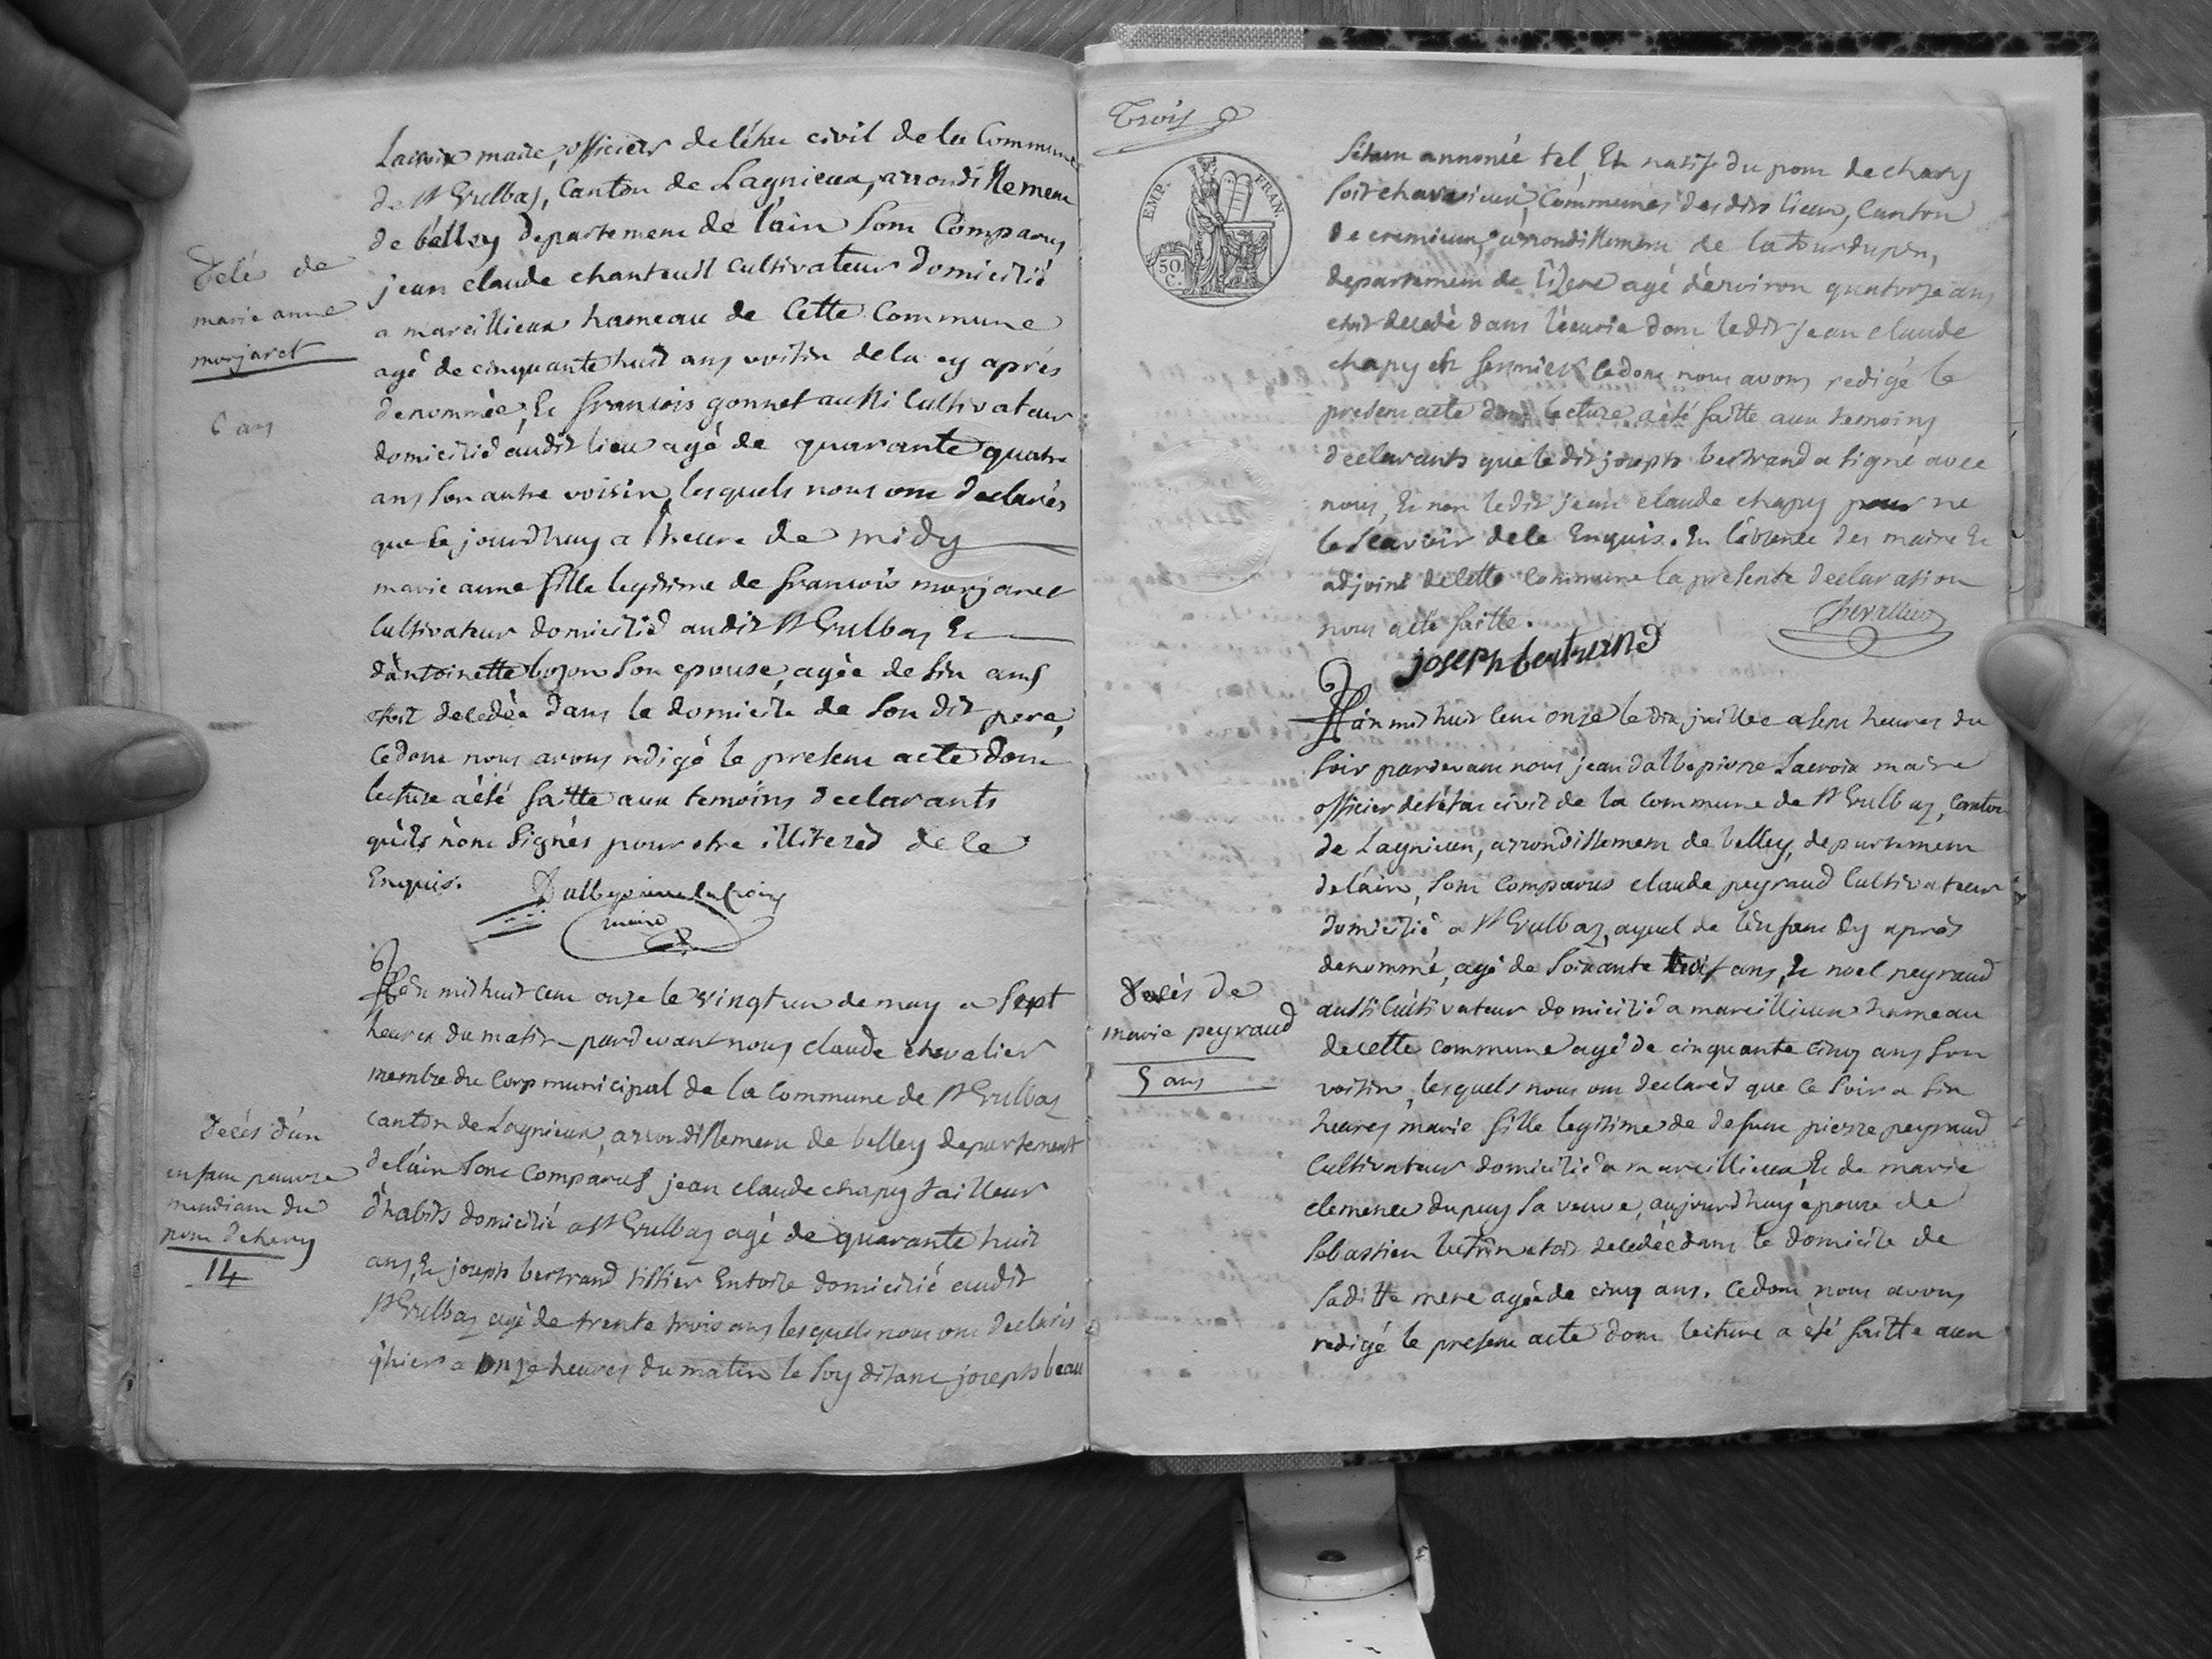 Lacroix maire, officier de l'étac civil de la Commune
de St Vulbas, Canton de Lagnieux, arrondissement
de belley departement de l'ain sont Comparus
jean claude chanteuil cultivateur domicilié
a marcillieux hameau de Cette Commune
agé de cinquante huit ans voisin de la cy aprés
denommée, Et francois gonnet aussi Cultivateur
domicilié audit lieu agé de quarante quatre
ans son autre voisin, lesquels nous ont declarés
que ce jourdhuy a l'heure de midy
marie anne fille legitime de francois morjaret
Cultivateur domicilié audit St Vulbas Et
d'antoinette bozon son epouse, agée de six ans
etoit decedée dans le domicile de son dit pere,
ce dont nous avons rédigé le present acte dont
lecture a été faitte aux temoins declarants
qu'ils n'ont signés pour etre illiterés de ce
Enquis.
Dalbepierre Lacroix
maire
Décé de
marie anne
morjaret
6 ans
L'an mil huit cent onze le vingt un de may a sept
heures du matin pardevant nous claude chevalier
membre du Corp municipal de la Commune de St Vulbas
canton de Lagnieux, arrondissement de belley departement
de l'ain sont Comparus jean claude chapuy tailleur
d'habits domicilié a St Vulbas agé de quarante huit
ans, Et joseph bertrand tissier En toile domicilié audit
St Vulbas agé de trente trois ans lesquels nous ont declarés
q'hier a onze heures du matin le soy disant joseph beau
Décés d'un
enfant pauvre
mendiant du
pont de chery
14
Trois
EMP. FRAN.
50 C.
s'étant annoncé tel, Et natif du pont de chery
soit chavasieux, Communes desdits lieux, Canton
de cremieux, arrondissement de latourdupin,
departement de l'izere agé d'environ quatorze ans
etoit decedé dans l'écurie dont ledit jean claude
chapuy est fermier ce dont nous avons redigé le
present acte dont lecture a été faitte aux temoins
declarants que ledit joseph bertrand a signé avec
nous, Et non ledit jean claude chapuy pour ne
le scavoir de ce Enquis. En l'absence des maire Et
adjoint de cette Commune la presente declaration
nous a été faitte.
Chevallier
joseph bertrand
L'an mil huit Cent onze le dix juillet a sept heures du
soir pardevant nous jean dalbepierre Lacroix maire
officier de l'état civil de la Commune de St Vulbas, Canton
de Lagnieux, arrondissement de belley, departement
de l'ain, sont Comparus claude peyraud Cultivateur
domicilié a St Vulbas, ayeul de l'enfant cy aprés
denommé, agé de soixante trois ans, Et noel peyraud
aussi Cultivateur domicilié a marcillieux hameau
de cette commune agé de cinquante cinq ans son
voisin, lesquels nous ont declarés que ce soir a six
heures marie fille legitime de defunt pierre peyraud
Cultivateur domicilié a marcillieux Et de marie
clemence dupuy sa veuve, aujourdhuy épouse de
sebastien etoit decedée dans le domicile de
sa ditte mere agée de cinq ans. Ce dont nous avons
redigé le present acte dont lecture a été faitte aux
Decés de
marie peyraud
5 ans